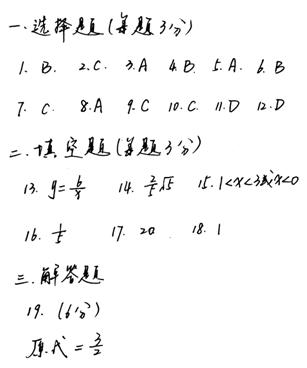 一.选择题(每题3分)
1. B. 2. C. 3. A 4. B. 5. A. 6. B
7. C. 8. A 9. C 10. C. 11. D 12. D
二.填空题(每题3分)
13. y=6/x 14. 2/5√5 15. 1<x<3或x<0
16. 1/5 17. 20 18. 1
三.解答题
19. (6分)
原式=3/2